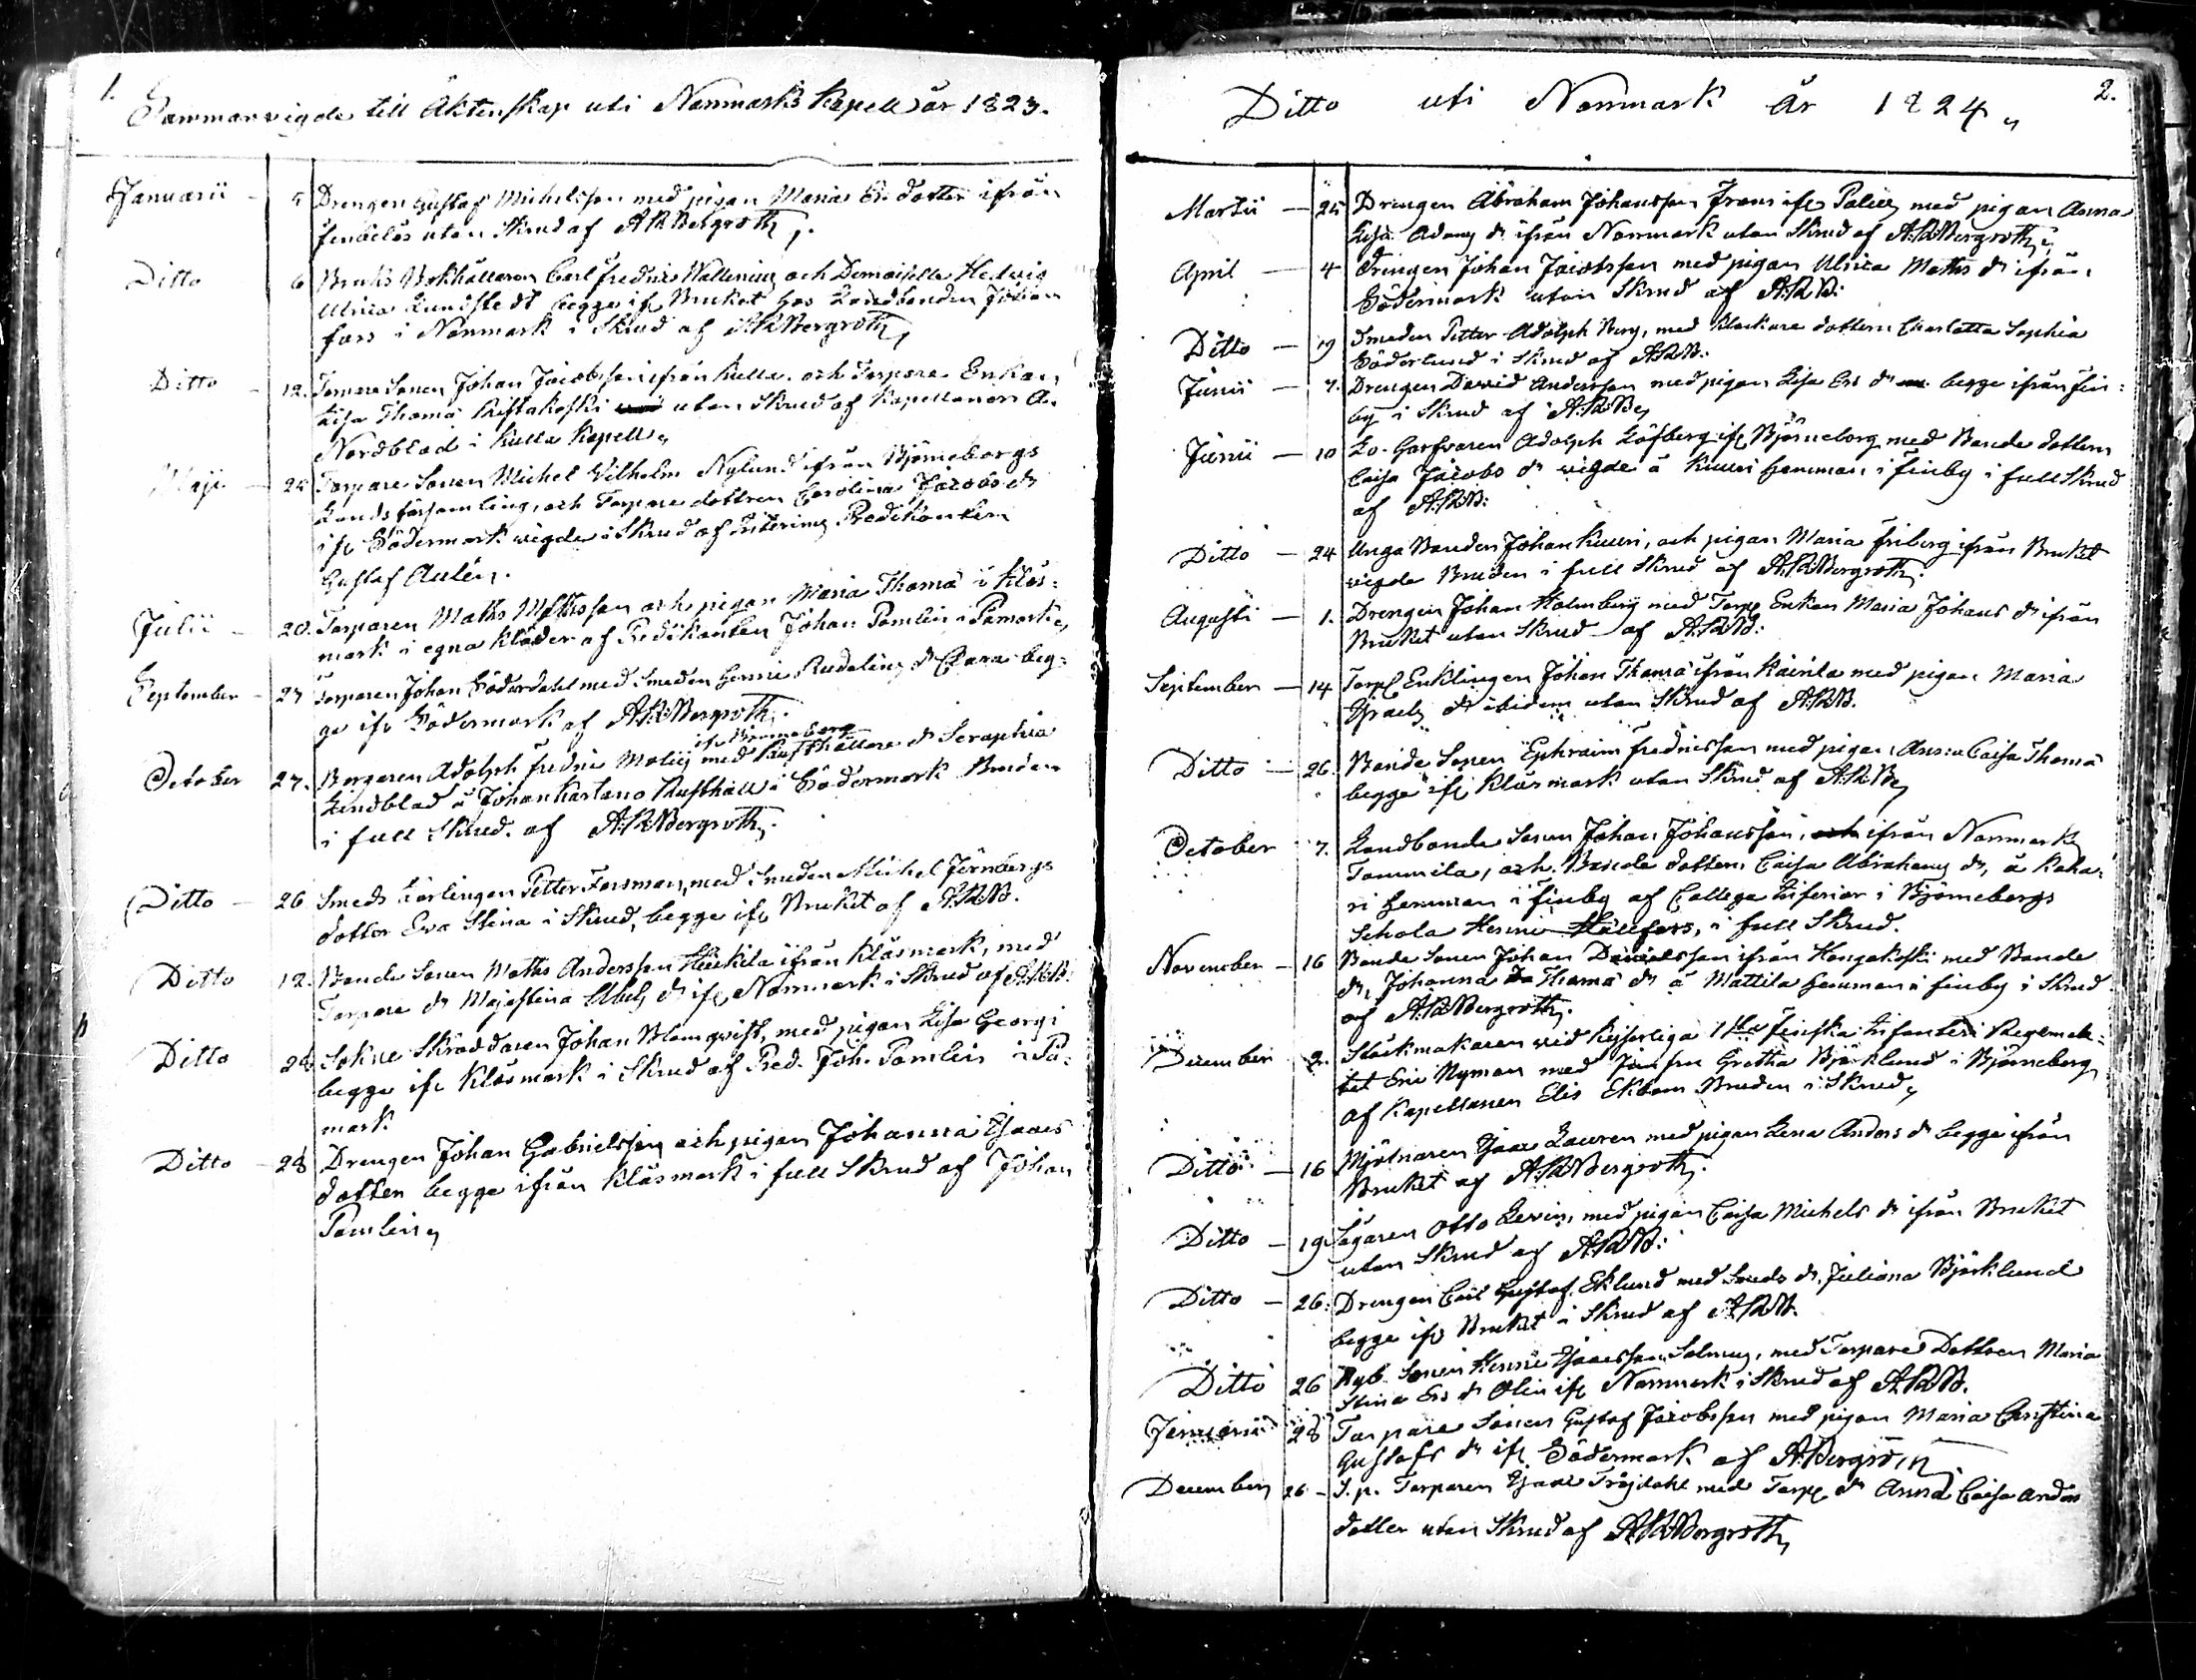 1.
Sammanvigde till Äktenskap uti Norrmarks Kapell år 1823.
Januarii - 5 Drengen Gustaf Michelsson med pigan Maria Er. dotter ifrån
utan Skrud af A:R:Bergroth.
Ditto 6 Bruks Bokhållaren Carl Fredric Wallenius och Demoiselle Hedvig
Ulrica Lundstedt begge ifr Bruket hos Landbonden Johan
fors i Norrmark i Skrud af A:R:Bergroth
Ditto - 12. Sonen Johan Jacobsson ifrån Kulla och Torpare Enkan
Lisa Thomä utan Skrud af Kapellanen A.
Nordblad i Kulla Kapell
Maji - 24 Torpare Sonen Michel Vilhelm Nylund ifrån Björneborgs
Lands församling, och Torpare dottren Carolina Jacobs dr
ifr Södermark vigde i Skrud af Interims Predikanten
Gustaf Aulén.
Julii - 20. Torparen Maths Mathsson och pigan Maria Thomä i Klås-
mark i egna kläder af Predikanten Johan Pomlin i Påmark
September - 27 Torparen Johan Söderdahl med Smeden Henric Rudelins dr Clara beg-
ge ifr Södermark af A:R:Bergroth.
ifr Björneborg
October 27. Borgaren Adolph Fredric Molin med Rusthållare dr Seraphia
Lindblad å Johan Kartano Rusthåll i Södermark Bruden
i full Skrud. af A:R:Bergroth.
Ditto - 26 Smeds Lärlingen Petter Forsman, med Smeden Michel Jernbergs
dotter Eva Stina i Skrud, begge ifr Bruket af A:R:B.
Ditto 12. Bonde Sonen Maths Andersson Heikila ifrån Klåsmark, med
Torpare dr Maja Stina Abels dr ifr Norrmark i Skrud af A:R:B:
Ditto 28 Sokne Skräddaren Johan Blomqvist, med pigan Lisa Georgi
begge ifr Klåsmark i Skrud af Pred. Joh. Pomlin i På-
mark
Ditto - 28 Drengen Johan Gabrielsson och pigan Johanna Isaacs
dotter begge ifrån Klåsmark i full Skrud af Johan
Pomlin
2.
Ditto uti Norrmark År 1824
Martii - 25 Drengen Abraham Johansson Frans ifr med pigan Anna
Lisa Adams dr ifrån Norrmark utan Skrud af A:R:Bergroth
April - 4 Drengen Johan Jacobsson med pigan Ulrica Maths dr ifrån
Södermark utan Skrud af A:R:B:
Ditto - 19 Smeden Petter Adolph Berg, med Klockare dottern Charlotta Sophia
Söderlund i Skrud af A:R:B:
Junii - 7. Drengen David Andersson med pigan Lisa Ers dr begge ifrån Fin-
by i Skrud af A:R:B
Junii - 10 Lo-Garfvaren Adolph Löfberg ifr Björneborg med Bonde dottern
Caisa Jacobs dr vigde å Kuuri hemman i Finby i full Skrud
af A:R:B:
Ditto - 24 Unga Bonden Johan Kuuri, och pigan Maria Friberg ifrån Bruket
vigde Bruden i full Skrud af A:R:Bergroth.
Augusti - 1. Drengen Johan Holmberg med Torp Enkan Maria Johans dr ifrån
Bruket utan Skrud af A:R:B:
September - 14 Torp Enklingen Johan Thomä ifrån Kairila med pigan Maria
Israels dr ibidem utan Skrud af A:R:B.
Ditto - 26. Bonde Sonen Ephraim Fredricsson med pigan Anna Caisa Thomä
begge ifr Klåsmark utan Skrud af A:R:B
October 7. Landbonde Sonen Johan Johansson, ifrån Norrmark
Tommila, och Bonde dottern Caisa Abrahams dr, å Kaha-
ri hemman i Finby af Collega Inferior i Björneborgs
Schola Henric Hällfors, i full Skrud.
November - 16 Bonde Sonen Johan Davidsson ifrån Hongakoski med Bonde
dr, Johanna Thomä dr å Mattila hemman i Finby i Skrud
af A:R:Bergroth.
December 2. Stockmakaren vid Kejserliga 1sta Finska Infanteri Regemen-
tet Eric Nyman med Jungfru Gretha Björklund i Björneborg
af Kapellanen Elis Ekbom Bruden i Skrud
Ditto - 16 Mjölnaren Isaac Lauren med pigan Lena Anders dr begge ifrån
Bruket af A:R:Bergroth.
Ditto - 19 Sågaren Otto Levin, med pigan Caisa Michels dr ifrån Bruket
utan Skrud af A:R:B:
Ditto - 26. Drengen Carl Gustaf Eklund med Smeds dr, Juliana Björklund
begge ifr Bruket i Skrud af A:R:B.
Ditto 26 Nyb. Sonen Henric Isaacsson Salmus, med Torpare Dottren Maria
Stina Ers dr Olin ifr Norrmark i Skrud af A:R:B.
Januarii 28 Torpare Sonen Gustaf Jacobsson med pigan Maria Christina
Gustafs dr ifr Södermark af A:Bergroth
December 26 - S.p. Torparen Isaac Fröjdahl med Torp dr Anna Caisa Anders
dotter utan Skrud af A:R:Bergroth